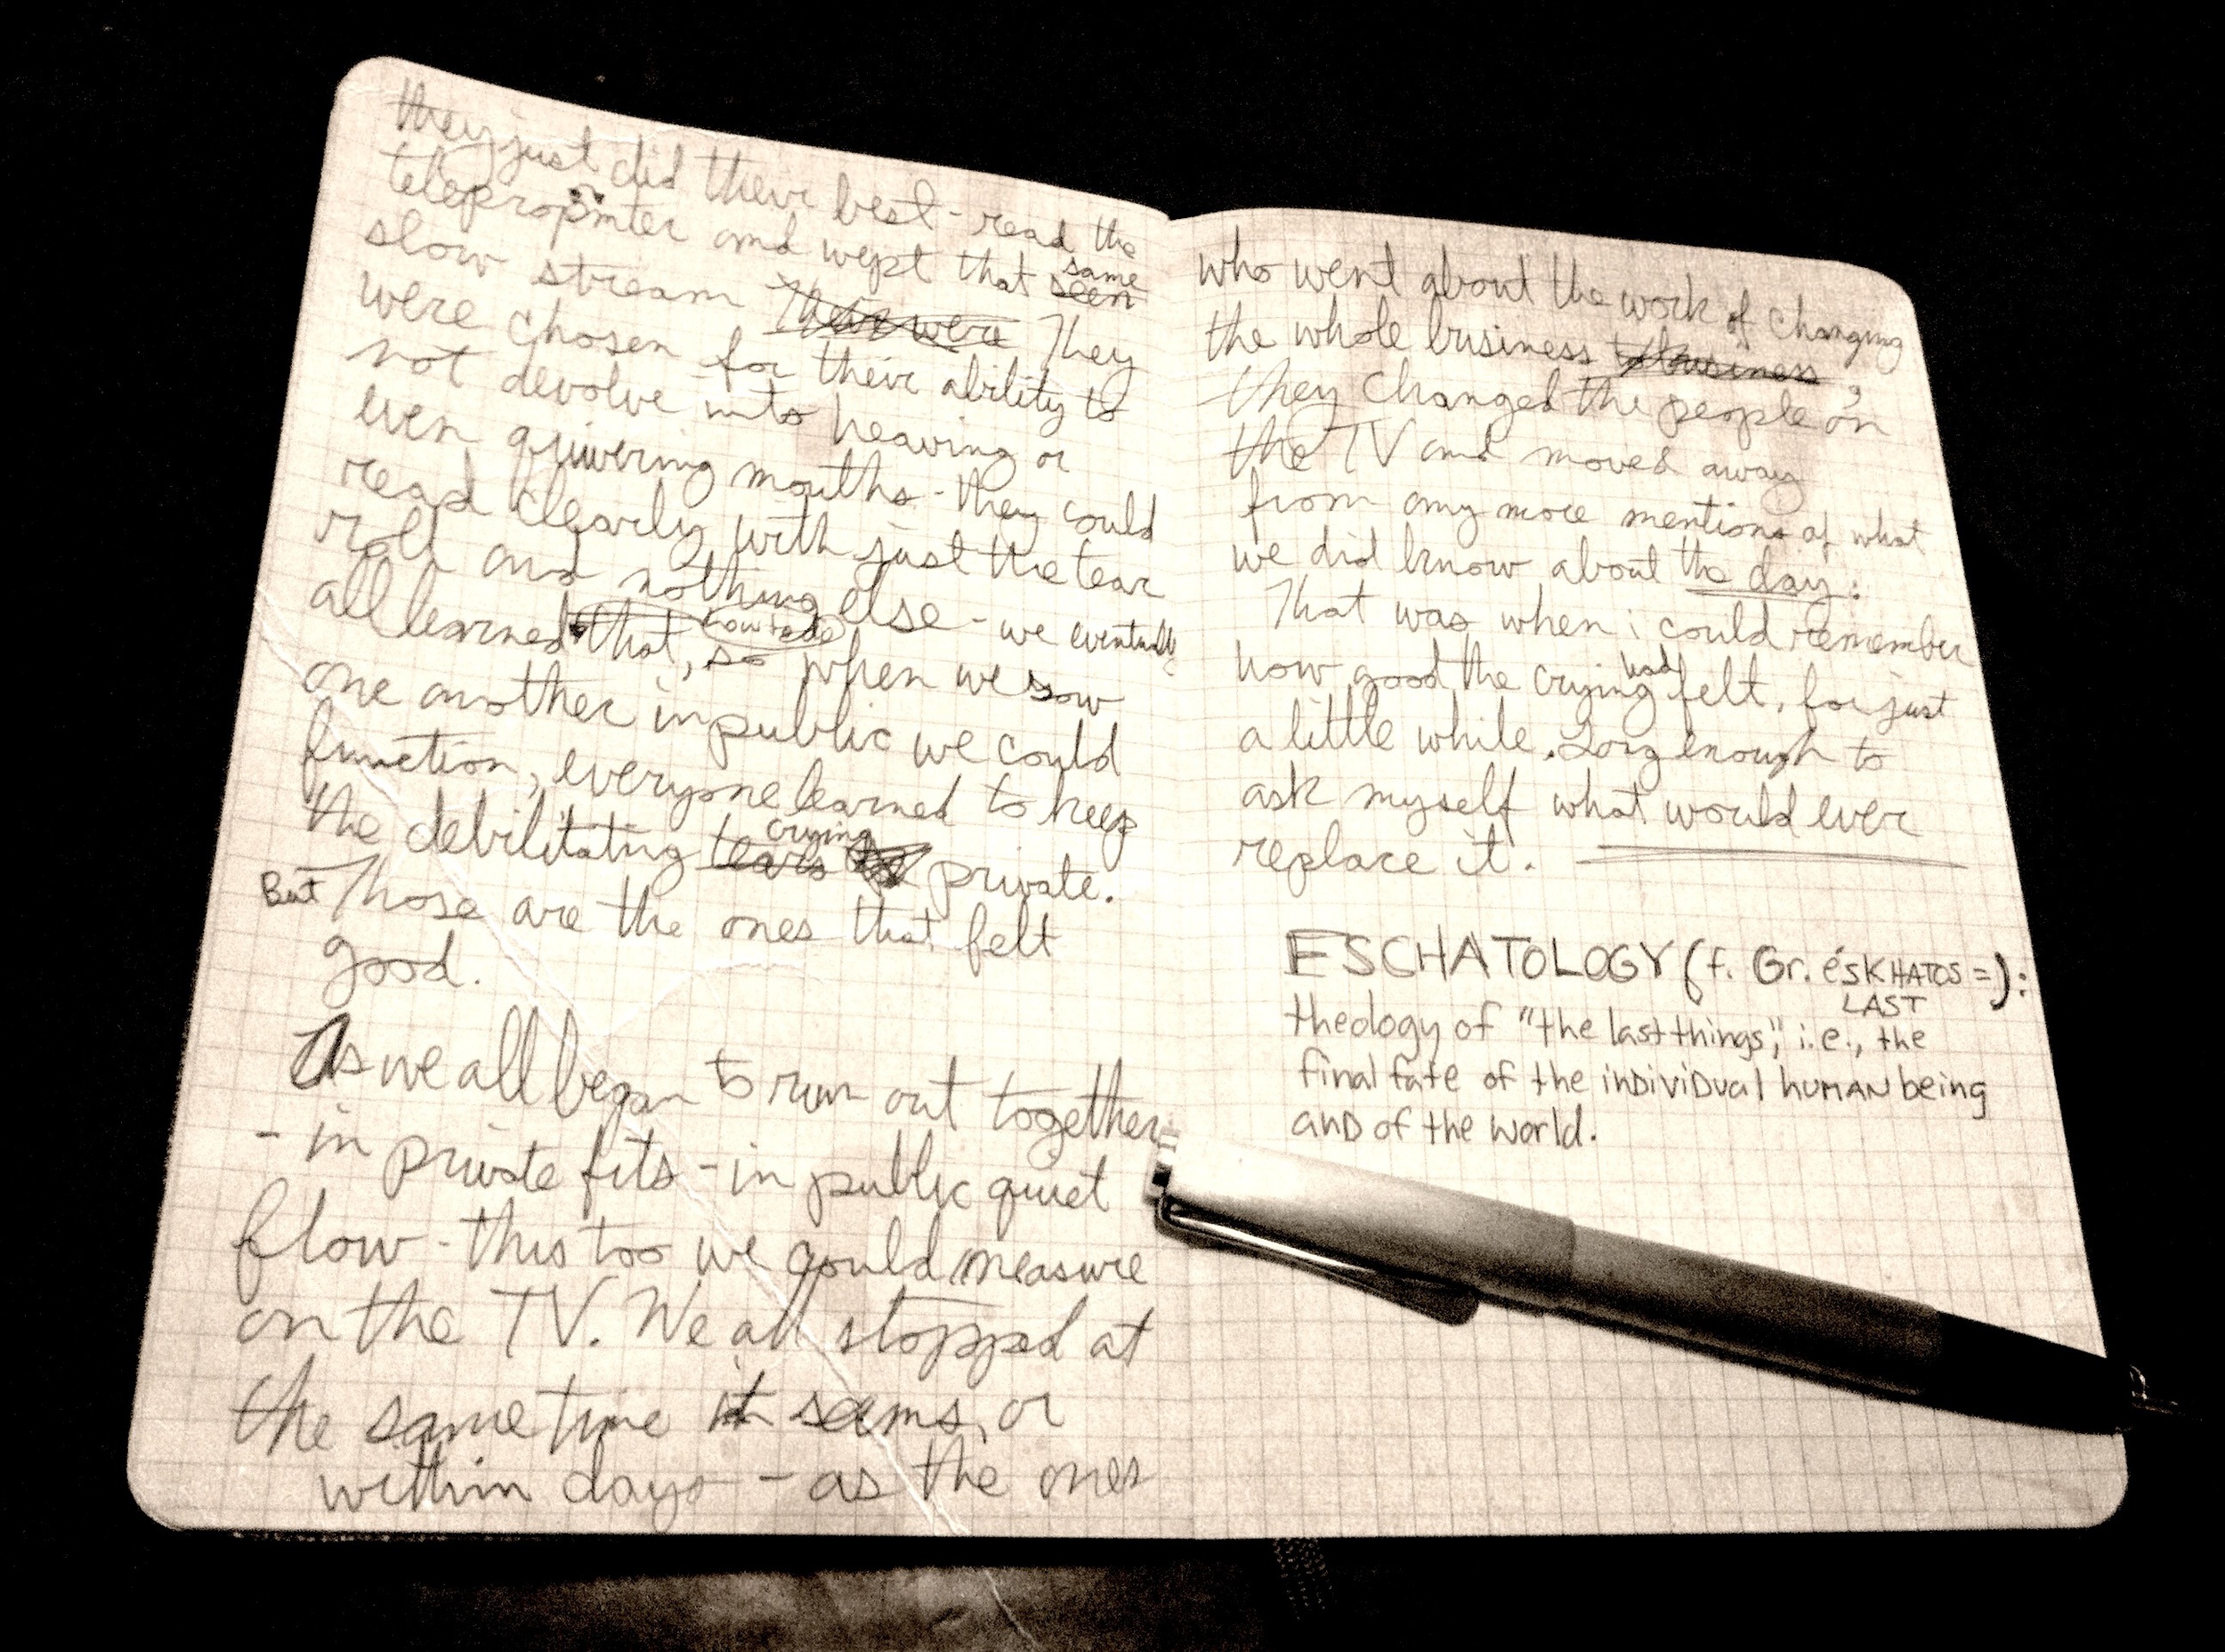 they just did their best - read the
teleprompter and wept that same seen
slow stream Their were They
were chosen for their ability to
not devolve into heaving or
even quivering mouths - they could
read clearly with just the tear
roll and nothing else - we eventually
all learned that, how to do so when we saw
one another in public we could
function, everyone learned to keep
the debilitating tears crying private.
But Those are the ones that felt
good.
As we all began to run out together
- in private fits - in public quiet
flow - this too we could measure
on the TV. We all stopped at
the same time it seems, or
within days - as the ones
who went about the work of changing
the whole business business,
they changed the people on
the TV and moved away
from any more mentions of what
we did know about the day:
That was when i could remember
how good the crying had felt, for just
a little while. Long enough to
ask myself what would ever
replace it.
ESCHATOLOGY (f. Gr. éskHATOS =):
LAST
theology of "the last things", i.e., the
final fate of the individual human being
and of the world.